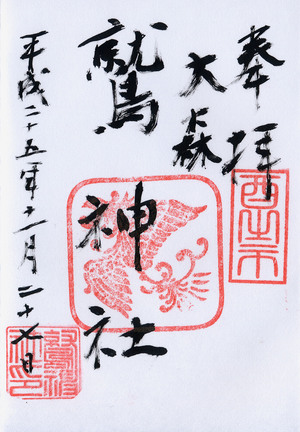 奉拝
大森
鷲神社
平成二十五年十一月二十七日